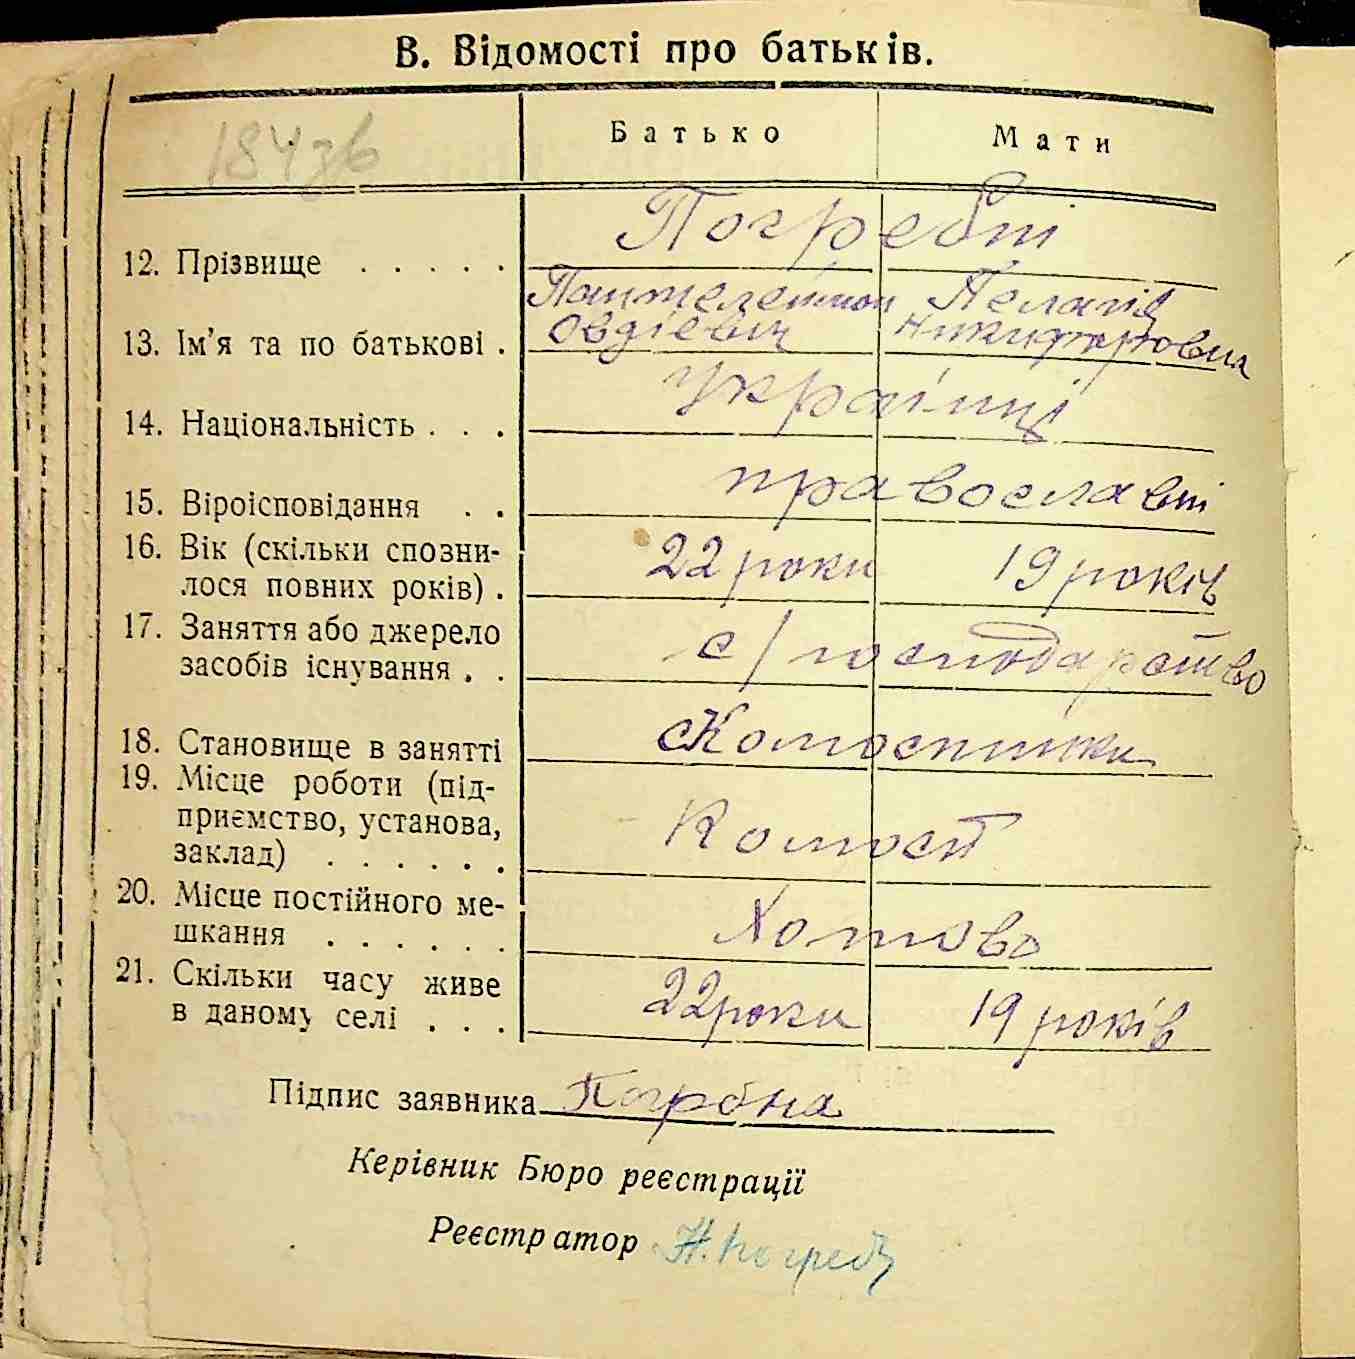 В. Відомості про батьків.
184зв
Батько Мати
12. Прізвище . . . . . Погребні
13. Ім'я та по батькові . Пантелеймон Овдієвич Пелагія Никифоровна
14. Національність . . . українці
15. Віроісповідання . . православні
16. Вік (скільки спозни-
лося повних років) . 22 роки 19 років
17. Заняття або джерело
засобів існування . . с/господарство
18. Становище в занятті
19. Місце роботи (під-
приємство, установа,
заклад) . . . . . .
20. Місце постійного ме-
шкання . . . . . . Хотово
21. Скільки часу живе
в даному селі . . . 22 роки 19 років
Підпис заявника Погрбна
Керівник Бюро реєстрації
Реєстратор